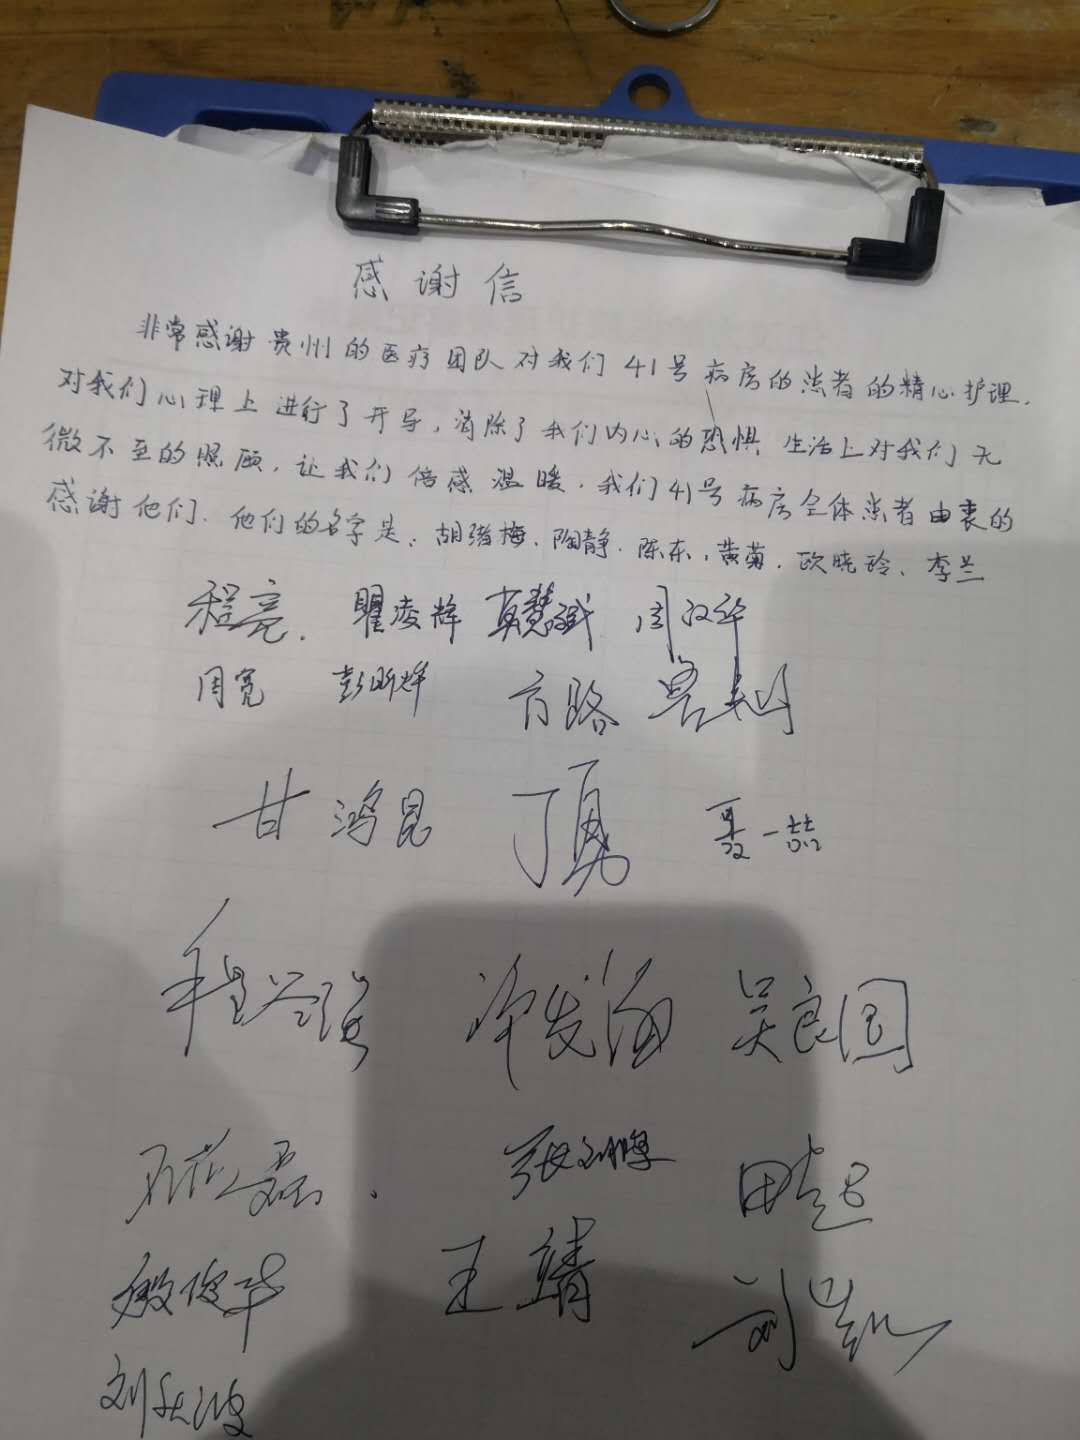 感谢信
非常感谢贵州的医疗团队对我们41号病房的患者的精心护理.
对我们心理上进行了开导,消除了我们内心的恐惧 生活上对我们无
微不至的照顾,让我们倍感温暖.我们41号病房全体患者由衷的
感谢他们.他们的名字是:胡绪梅、陶静.陈东,黄菊.欧晓玲、李兰
程亮. 瞿凌辉 周汉华
周宽 彭昕烊 方路
甘鸿昆 丁勇 聂一喆
程 吴良国
王靖
殷俊华
刘